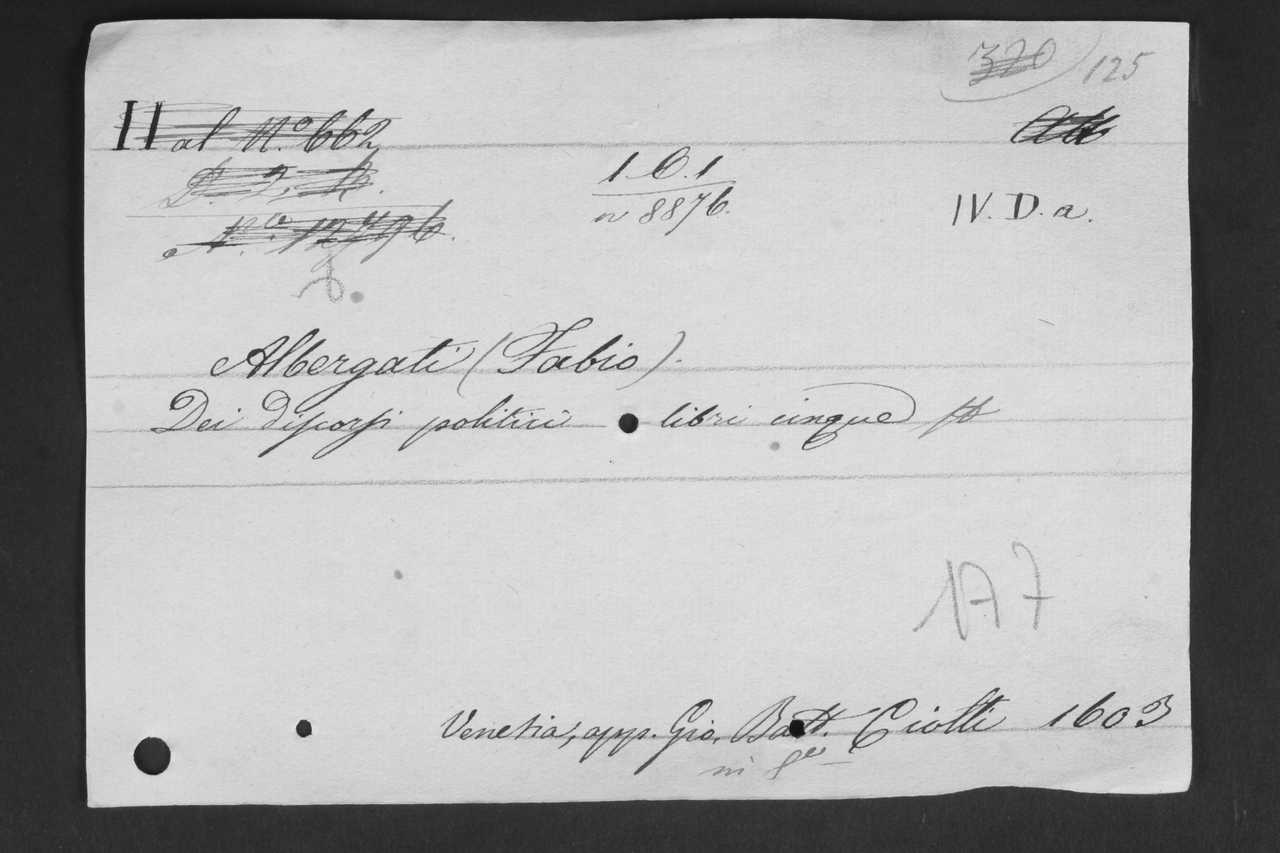 320 125
II al N.º 662
1 6. 1
n 8876.
IV. D. a.
Albergati (Fabio).
Dei discorsi politici libri cinque
17 A 7
Venetia, app. Gio. Batt. Ciotti 1603
in 8º